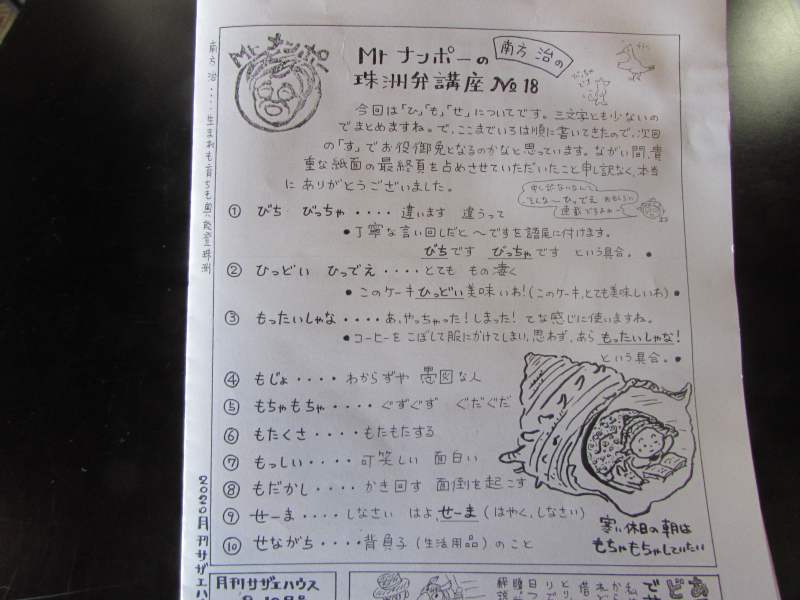 Mr ナンポー
Mr ナンポーの
南方 治の
珠洲弁講座 No18
今回は「ひ」「も」「せ」についてです。三文字とも少ないの
でまとめますね。で、ここまでいろは順に書いてきたので、次回
の「す」でお役御免となるのかなと思っています。ながい間、貴
重な紙面の最終頁を占めさせていただいたこと申し訳なく、本当
にありがとうございました。
① びち びっちゃ・・・・違います 違うって
●丁寧な言い回しだと〜ですを語尾に付けます。
びちです びっちゃです という具合。●
② ひっどい ひっでえ・・・・とても もの凄く
●このケーキひっどい美味いわ!(このケーキ、とても美味しいわ)●
③ もったいしゃな・・・・あ、やっちゃった!しまった!てな感じに使いますね。
●コーヒーをこぼして服にかけてしまい、思わず、あらもったいしゃな!
という具合。●
④ もじょ・・・・わからずや 愚図な人
⑤ もちゃもちゃ・・・・ぐずぐず ぐだぐだ
⑥ もたくさ・・・・もたもたする
⑦ もっしい・・・・可笑しい 面白い
⑧ もだかし・・・・かき回す 面倒を起こす
⑨ せーま・・・・しなさい はよ、せーま(はやく、しなさい)
⑩ せながち・・・・背負子(生活用品)のこと
寒い休日の朝は
もちゃもちゃしていたい
南方 治・・・・生まれも育ちも奥能登珠洲
2020月刊サザエハウス
月刊サザエハウス